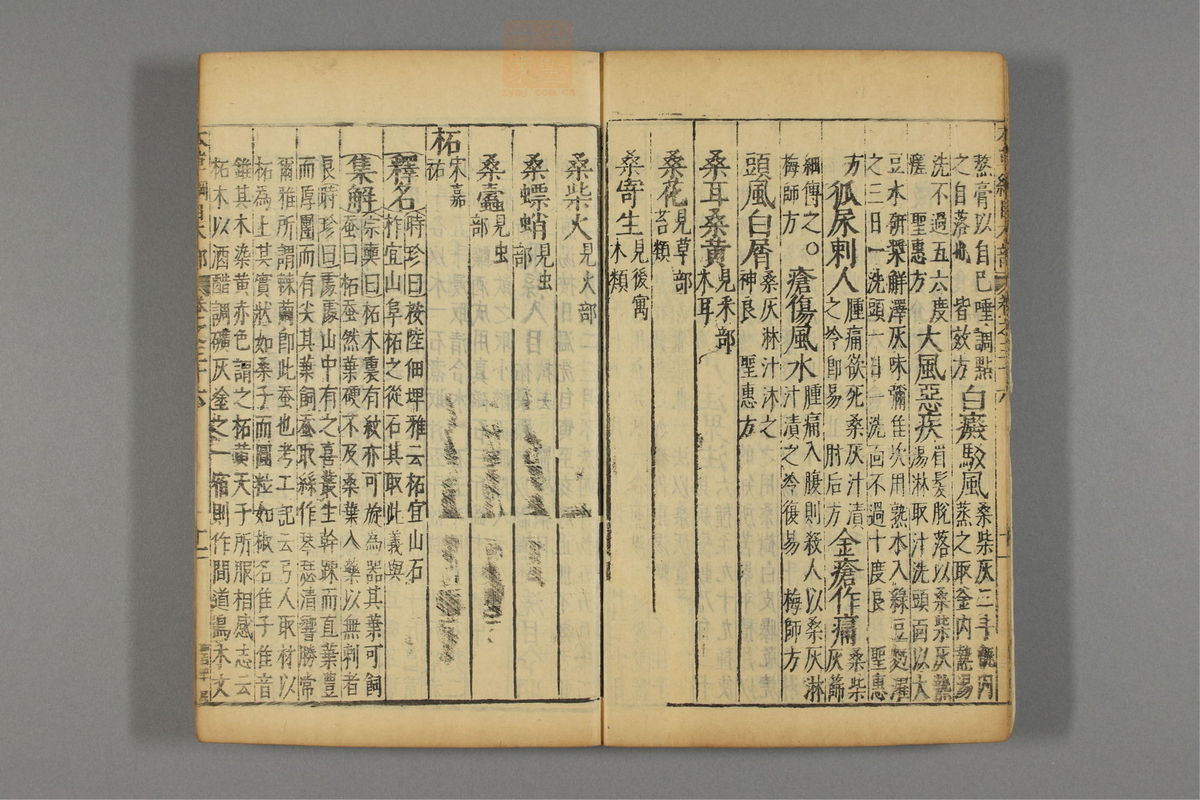 蒸膏以自己唾調點
之自落也 皆效方 白癜駁風 桑柴灰二斗甑內蒸之取釜內熱湯
洗不過五六度 大風惡疾 眉髮脫落以桑柴灰熱湯淋取汁洗頭面以大
豆水研漿解澤灰味彌佳次用熱水入綠豆麪濯
之三日一洗頭一日一洗面不過十度良 聖惠
方 狐尿刺人 腫痛欲死桑灰汁漬之冷即易 肘后方 金瘡作痛 桑柴灰篩
傅之○ 瘡傷風水 腫痛入腹則殺人以桑灰淋汁漬之冷復易 梅師方
頭風白屑 桑灰淋汁沐之神良 聖惠方
桑耳桑黃 見菜部木耳
桑花 見草部苔類
桑寄生 見後寓木類
桑柴火 見火部
桑螵蛸 見虫部
桑蠹 見虫部
柘 宋嘉祐
釋名 時珍曰按陸佃埤雅云柘宜山石柞宜山阜柘之從石其取此義與
集解 宗奭曰柘木裏有紋亦可旋為器其葉可飼蚕曰柘蚕然葉硬不及桑葉入藥以無刺者
良時珍曰處處山中有之喜叢生幹疎而直葉豐
而厚團而有尖其葉飼蚕取絲作琴瑟清響勝常
爾雅所謂棘繭即此蚕也考工記云弓人取材以
柘為上其實狀如桑子而圓粒如椒名隹子隹音
錐其木染黃赤色謂之柘黃天子所服相感志云
柘木以酒醋調礦灰塗之一宿則作間道烏木文